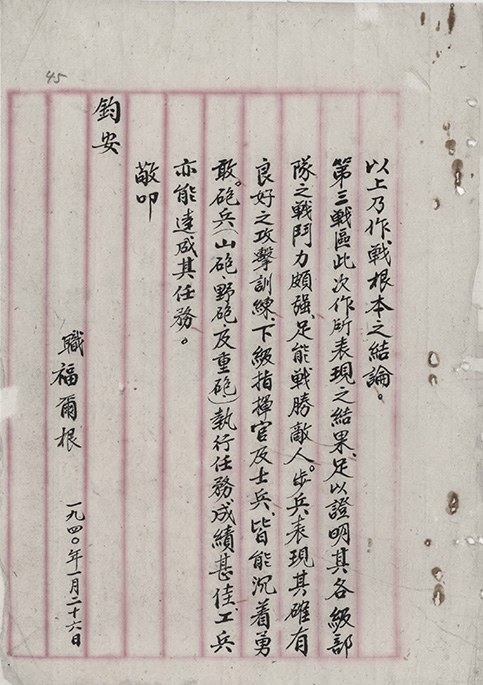 45
以上乃作戰根本之結論。
第三戰區此次作所表現之結果、足以證明其各級部
隊之戰鬥力頗強、足能戰勝敵人。步兵表現其確有
良好之攻擊訓練、下級指揮官及士兵、皆能沉着勇
敢。砲兵(山砲、野砲、及重砲)執行任務成績甚佳、工兵
亦能達成其任務。
敬叩
鈞安
職福爾根 一九四〇年一月二十六日